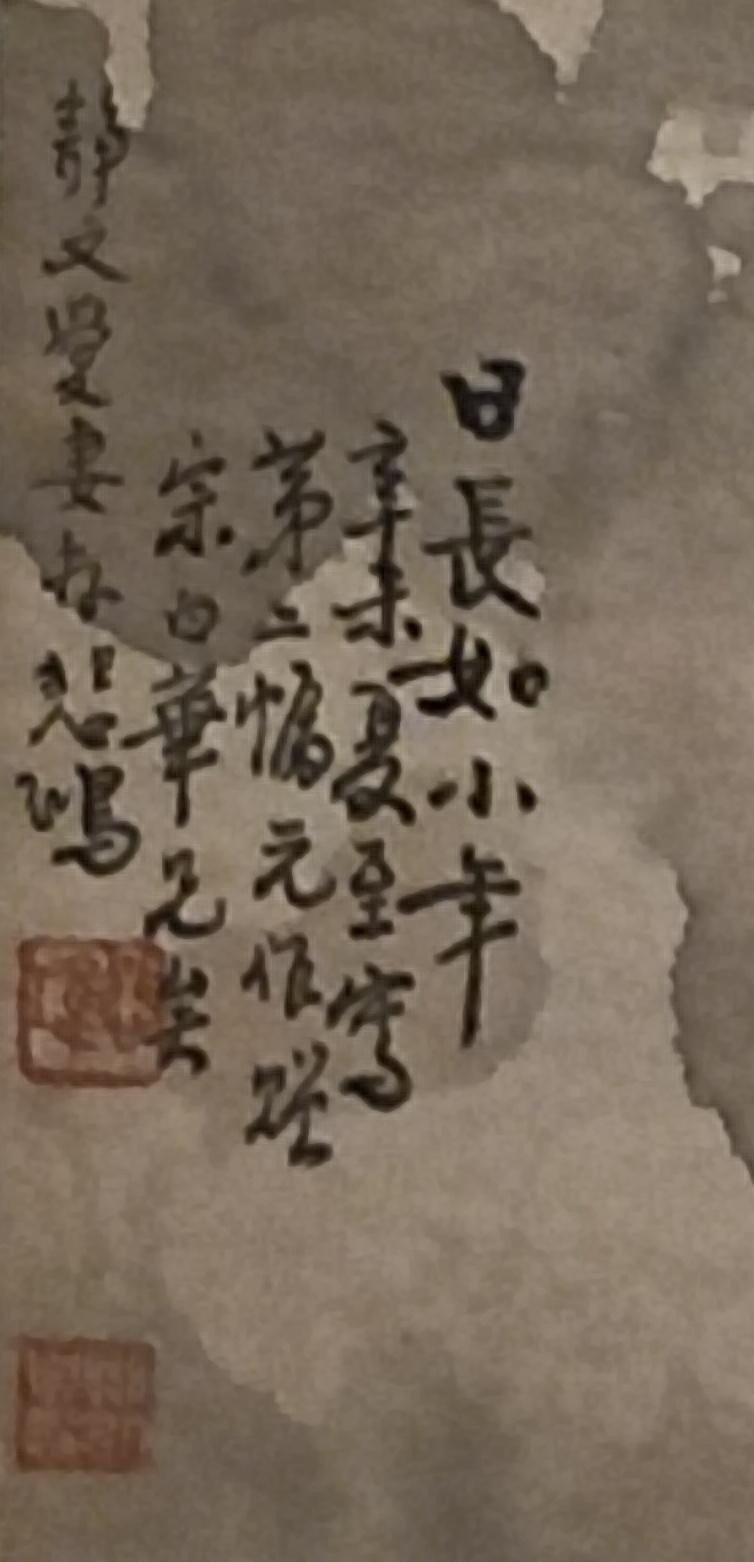 日長如小年
辛未夏至寫
第二幀元作贈
宗白華兄矣
靜文愛妻存 悲鴻